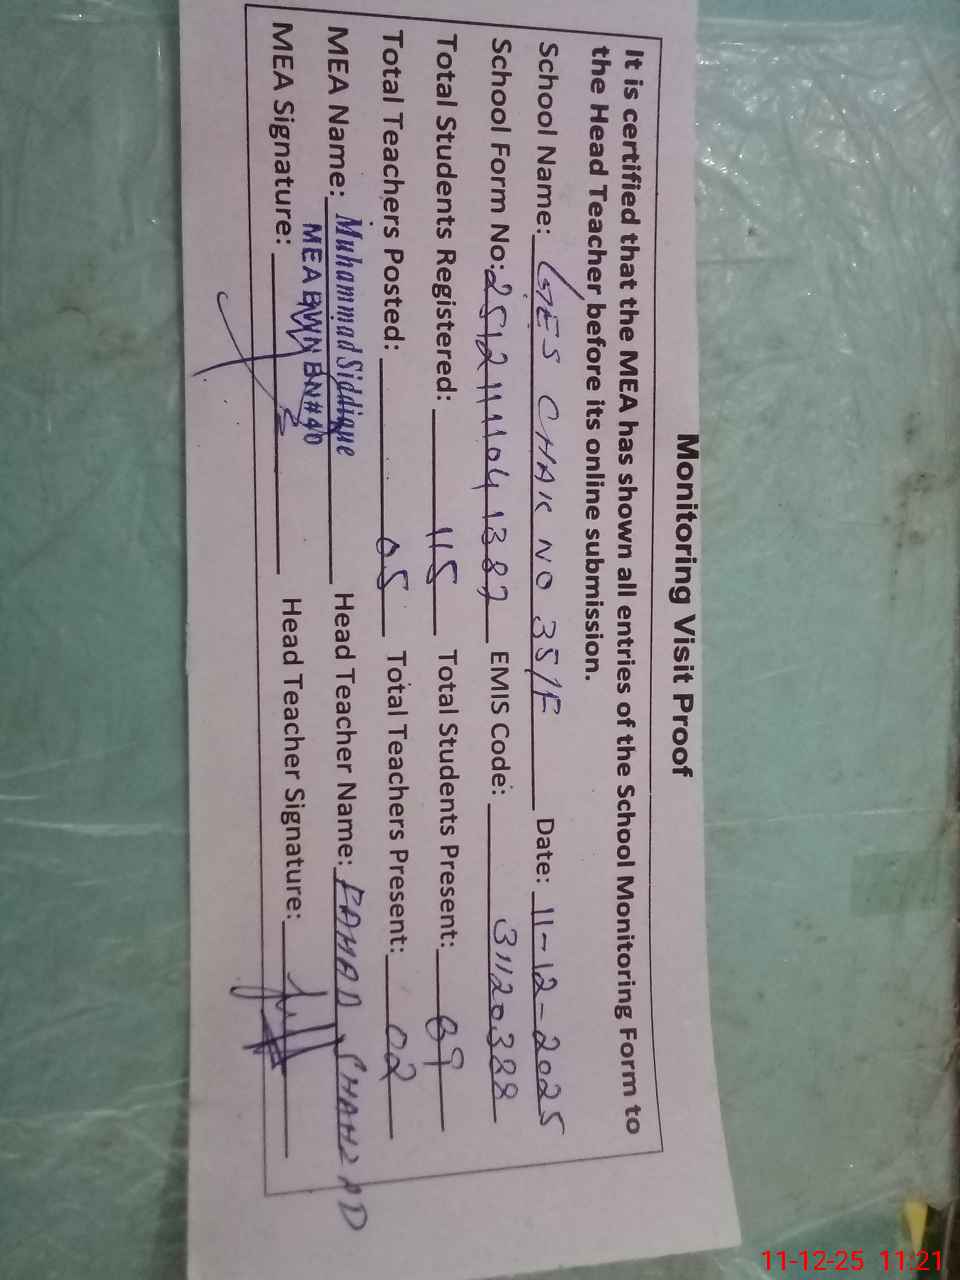 Monitoring Visit Proof
It is certified that the MEA has shown all entries of the School Monitoring Form to
the Head Teacher before its online submission.
School Name: GES CHAK NO 35/F Date: 11-12-2025
School Form No: EMIS Code: 31120388
Total Students Registered: 115 Total Students Present: 69
Total Teachers Posted: 05 Total Teachers Present: 02
MEA Name: Muhammad Siddique Head Teacher Name: FAHAD
MEA BWN BN#40
MEA Signature: Head Teacher Signature:
11-12-25 11:21